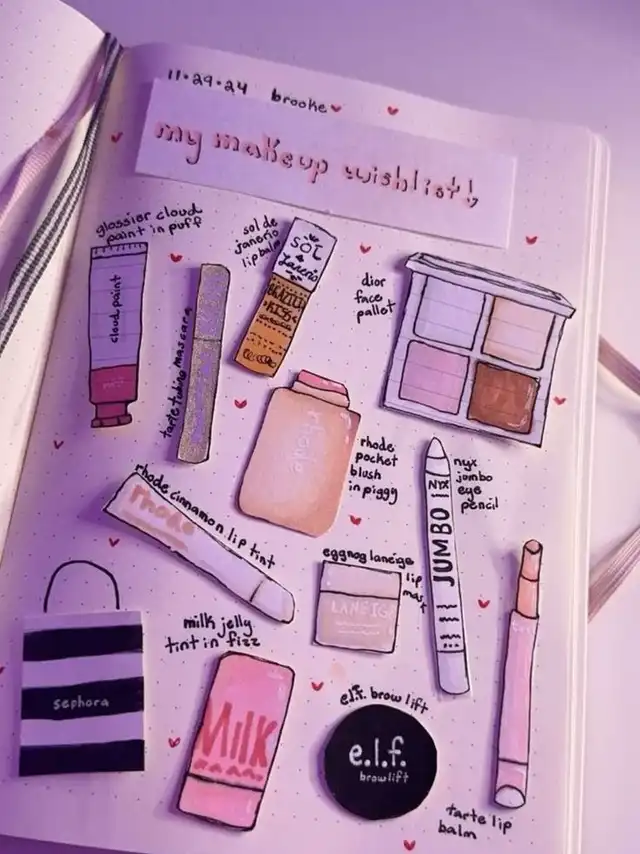 11•29•24 brooke
my makeup wishlist!
glossier cloud
paint in puff
cloud paint
sol de
janerio
lip balm
SOL
de
Janerio
dior
face
pallot
tarte tubing mascara
rhode
rhode
pocket
blush
in piggy
nyx
jumbo
eye
pencil
NYX
JUMBO
rhode cinnamon lip tint
rhode
eggnog laneige
lip
mask
LANEIGE
milk jelly
tint in fizz
MILK
sephora
e.l.f. brow lift
e.l.f.
brow lift
tarte lip
balm